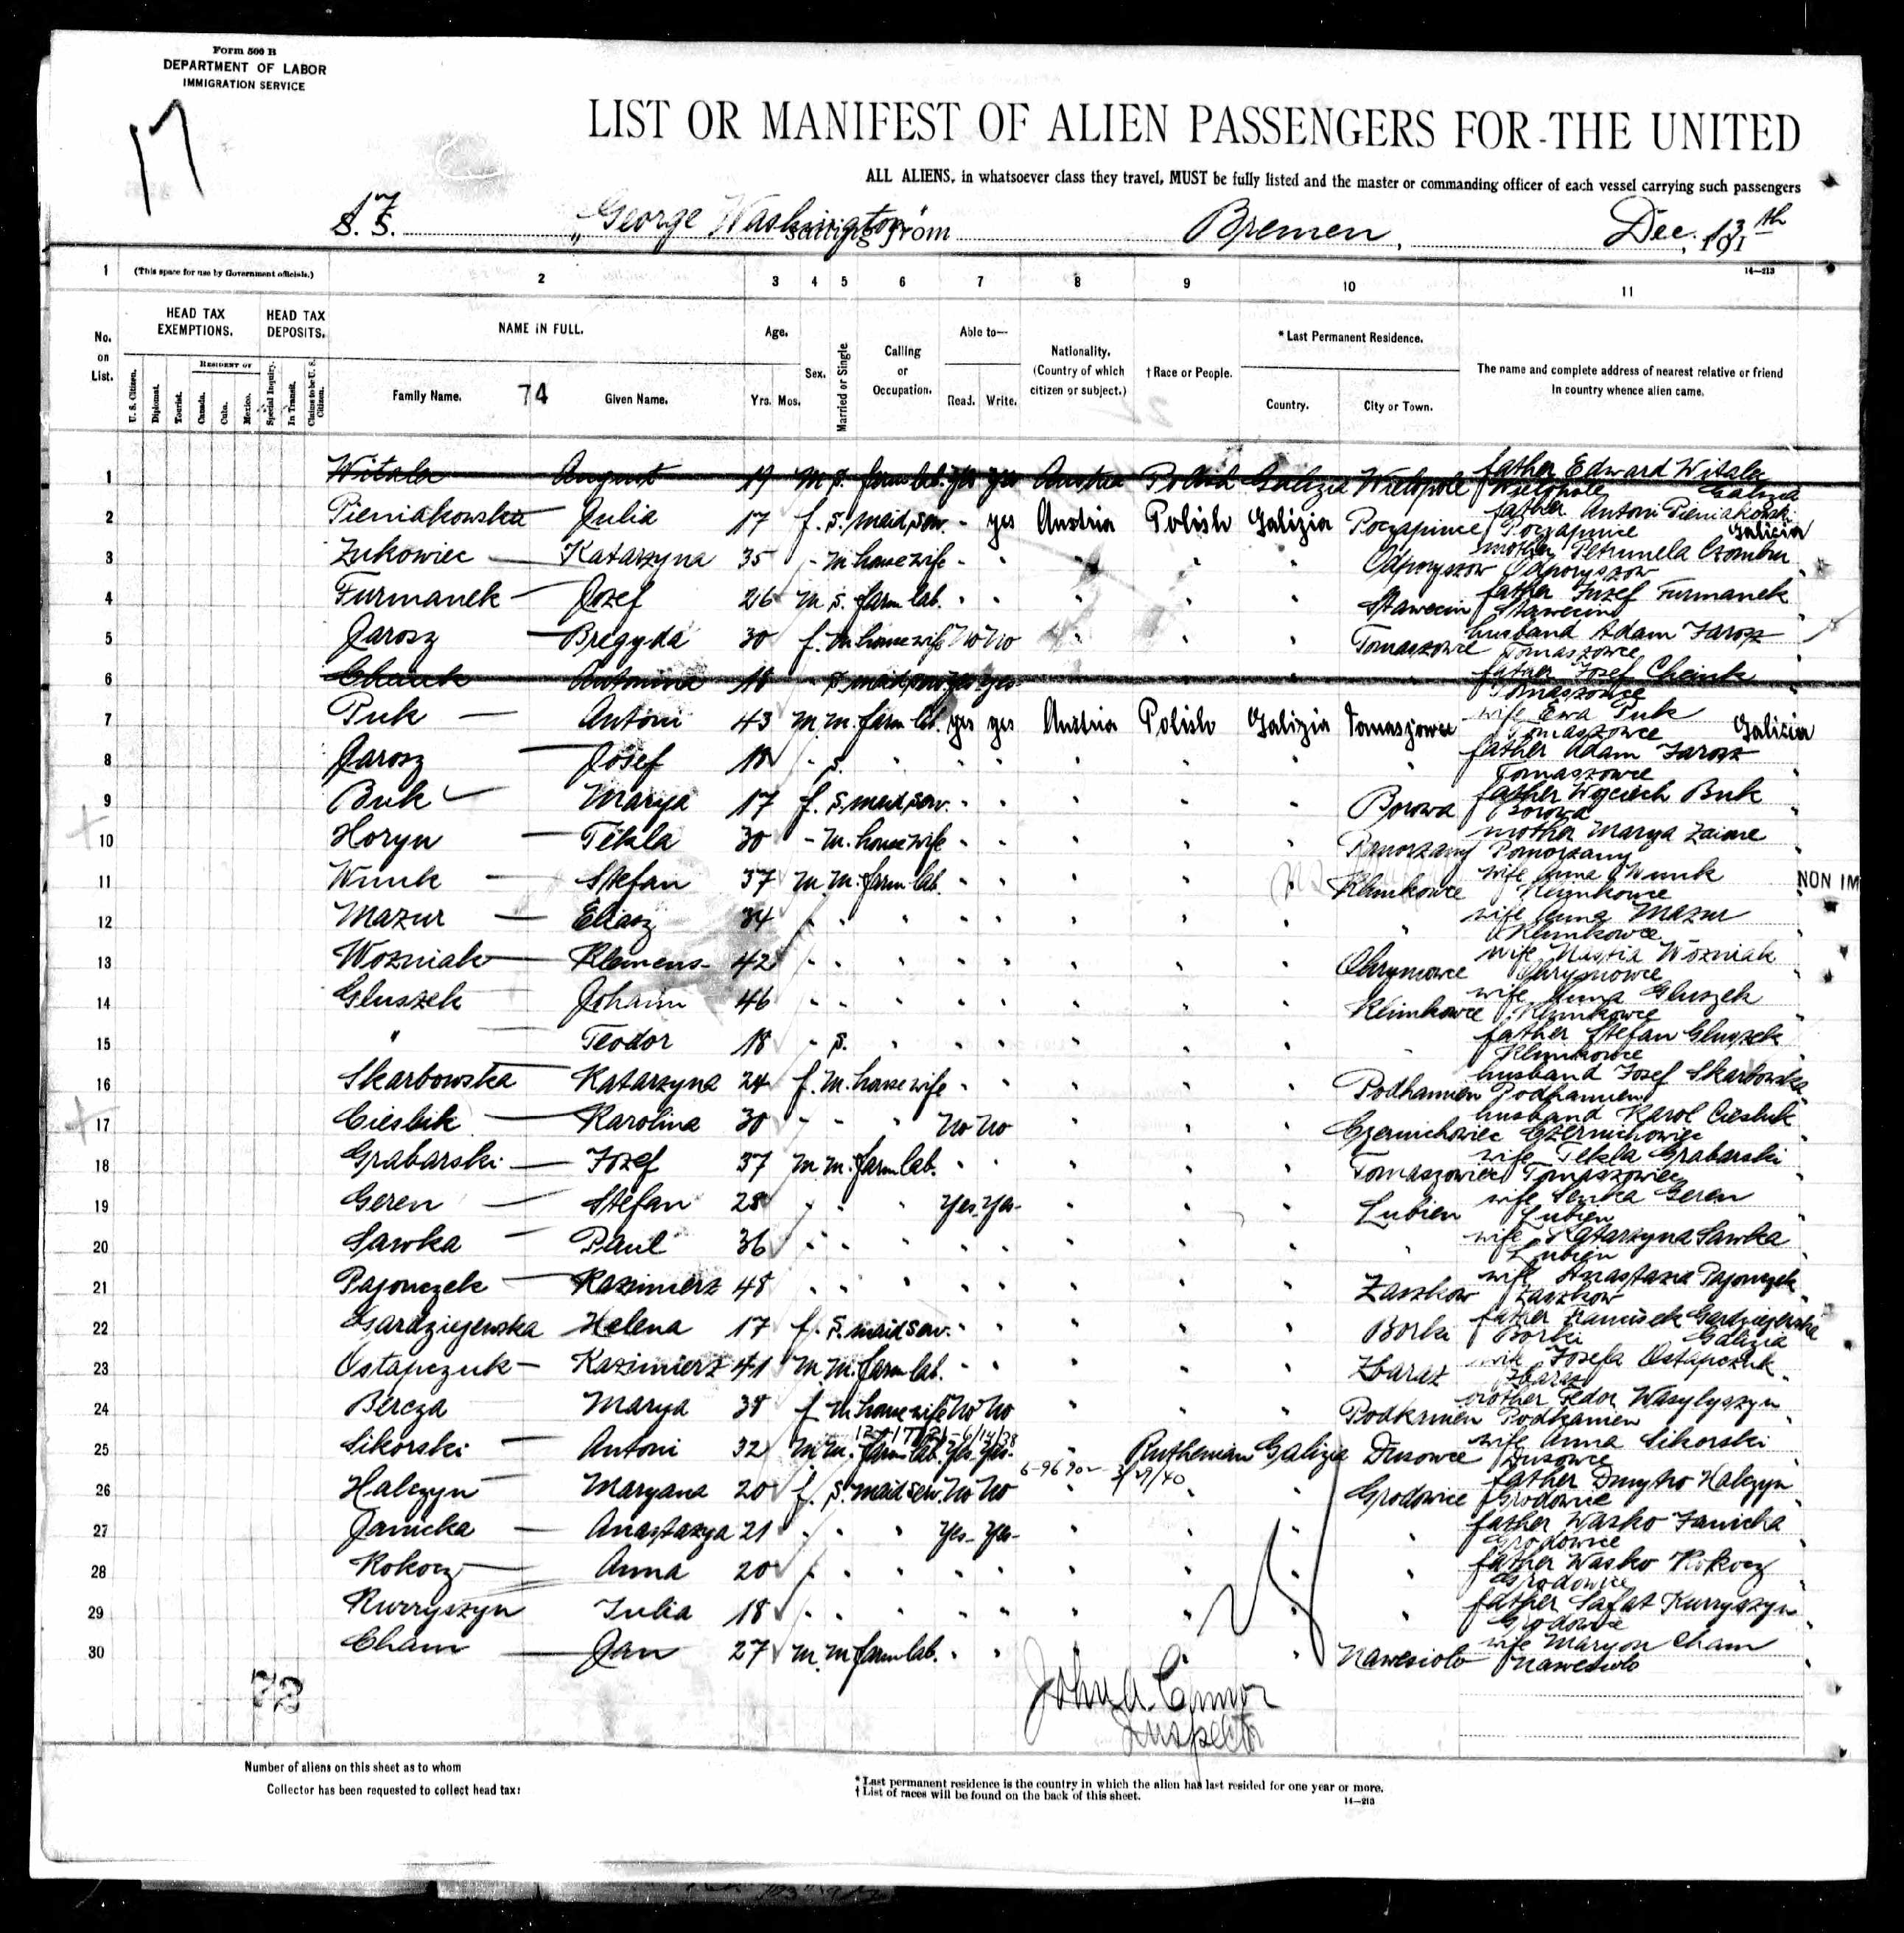 Form 500 B
DEPARTMENT OF LABOR
IMMIGRATION SERVICE
17
LIST OR MANIFEST OF ALIEN PASSENGERS FOR THE UNITED
ALL ALIENS, in whatsoever class they travel, MUST be fully listed and the master or commanding officer of each vessel carrying such passengers
17
S. S. "George Washington" sailing from Bremen, Dec. 13th, 191
14—213
1 (This space for use by Government officials.) 2 3 4 5 6 7 8 9 10 11
No. on List.
HEAD TAX EXEMPTIONS.
HEAD TAX DEPOSITS.
U. S. Citizen. Diplomat. Tourist. RESIDENT OF Canada. Cuba. Mexico. Special Inquiry. In Transit. Claims to be U. S. Citizen.
NAME IN FULL.
Family Name. 74 Given Name.
Age. Yrs. Mos.
Sex.
Married or Single
Calling or Occupation.
Able to— Read. Write.
Nationality. (Country of which citizen or subject.)
† Race or People.
* Last Permanent Residence.
Country. City or Town.
The name and complete address of nearest relative or friend in country whence alien came.
1 Witala August 19 m s. farm lab. yes yes Austria Polish Galizia Wielopole father Edward Witala
Wielopole Galizia
2 Pieniakowska Julia 17 f. s. maid serv. - yes Austria Polish Galizia Poczapince father Antoni Pieniakowski
Poczapince Galicia
3 Zukowiec Katarzyna 35 - m housewife - " " " " Odporyszow mother Petrunela
Odporyszow "
4 Furmanek Jozef 26 m s. farm lab. " " " " " Stawecin father Jozef Furmanek
Stawecin "
5 Jarosz Bregyda 30 f. m housewife no no " " " Tomaszowce husband Adam Jarosz
Tomaszowce "
6 Antonina 18 - s maid serv yes yes father Josef
Tomaszowce "
7 Puk Antoni 43 m m. farm lab. yes yes Austria Polish Galizia Tomaszowce wife Ewa Puk
Tomaszowce Galicia
8 Jarosz Josef 18 - s. " " " " " " " father Adam Jarosz
Tomaszowce "
9 Buk Marya 17 f. s. maid serv. " " " " " Borowa father Wojciech Buk
Borowa "
10 Horyn Tekla 30 - m. housewife " " " " " Pomorzany mother Marya
Pomorzany "
11 Wnuk Stefan 37 m m. farm lab. " " " " " Klimkowce wife Anna Wnuk
Klimkowce NON IM
12 Mazur Eliasz 34 " " " " " " " " " wife Anna Mazur
Klimkowce "
13 Wozniak Klemens 42 " " " " " " " " wife Nastia Wozniak
14 Gluszek Johann 46 " " " " " " " " Klimkowce wife Anna Gluszek
Klimkowce "
15 " Teodor 18 " s. " " " " " " " father Stefan Gluszek
Klimkowce "
16 Skarbowska Katarzyna 24 f. m. housewife " " " " " Podkamien husband Josef Skarbowska
Podkamien "
17 Cieslik Karolina 30 " " " no no " " " Czernichowiec husband Karol Cieslik
Czernichowiec "
18 Grabarski Jozef 37 m m. farm lab. " " " " " Tomaszowiec wife Tekla Grabarski
Tomaszowiec "
19 Geren Stefan 28 " " " Yes Yes " " " Lubien wife Senka Geren
Lubien "
20 Sawka Paul 36 " " " " " " " " " wife Katarzyna Sawka
Lubien "
21 Pajonczek Kazimierz 48 " " " " " " " " Zaszkow wife Anastazia Pajonczek
Zaszkow "
22 Gardziejewska Helena 17 f. s. maid serv. " " " " " Borki father Franciszek Gardziejewska
Borki Galizia
23 Ostapczuk Kazimierz 41 m m. farm lab. " " " " " Zbaraz wife Josefa Ostapczuk
Zbaraz "
24 Bercza Marya 38 f m housewife no no " " " Podkamien brother Fedor Wasylyszyn
Podkamien "
6/14/38
25 Sikorski Antoni 32 m m. farm lab. Yes Yes " Ruthenian Galizia Dusowce wife Anna Sikorski
Dusowce
3/29/40
26 Halczyn Maryana 20 f. s. maid serv. no no " " " Grodowice father Dmytro Halczyn
Grodowice "
27 Janicka Anastazya 21 " " " Yes Yes " " " " father Wasko Janicka
Grodowice "
28 Kokocz Anna 20 " " " " " " " " " father Wasko Kokocz
Grodowice "
29 Kurryszyn Julia 18 " " " " " " " " " father Safat Kurryszyn
Grodowice "
30 Cham Jan 27 m. m farm lab. " " " " Nawesiolo wife Maryon Cham
Nawesiolo "
73
John A. Connor
Inspector
Number of aliens on this sheet as to whom
Collector has been requested to collect head tax:
* Last permanent residence is the country in which the alien has last resided for one year or more.
† List of races will be found on the back of this sheet.
14—213